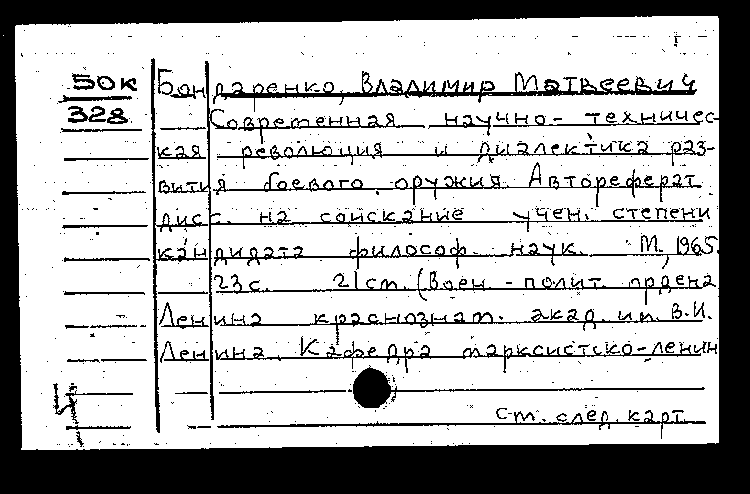 50к Бондаренко, Владимир Матвеевич
328 Современная научно-техничес-
кая революция и диалектика раз-
вития боевого оружия. Автореферат
дисс. на соискание учен. степени
кандидата философ. наук. М., 1965.
23 с. 21 см. (Воен.-полит. ордена
Ленина краснознам. акад. им. В.И.
Ленина. Кафедра марксистско-ленин
см. след. карт